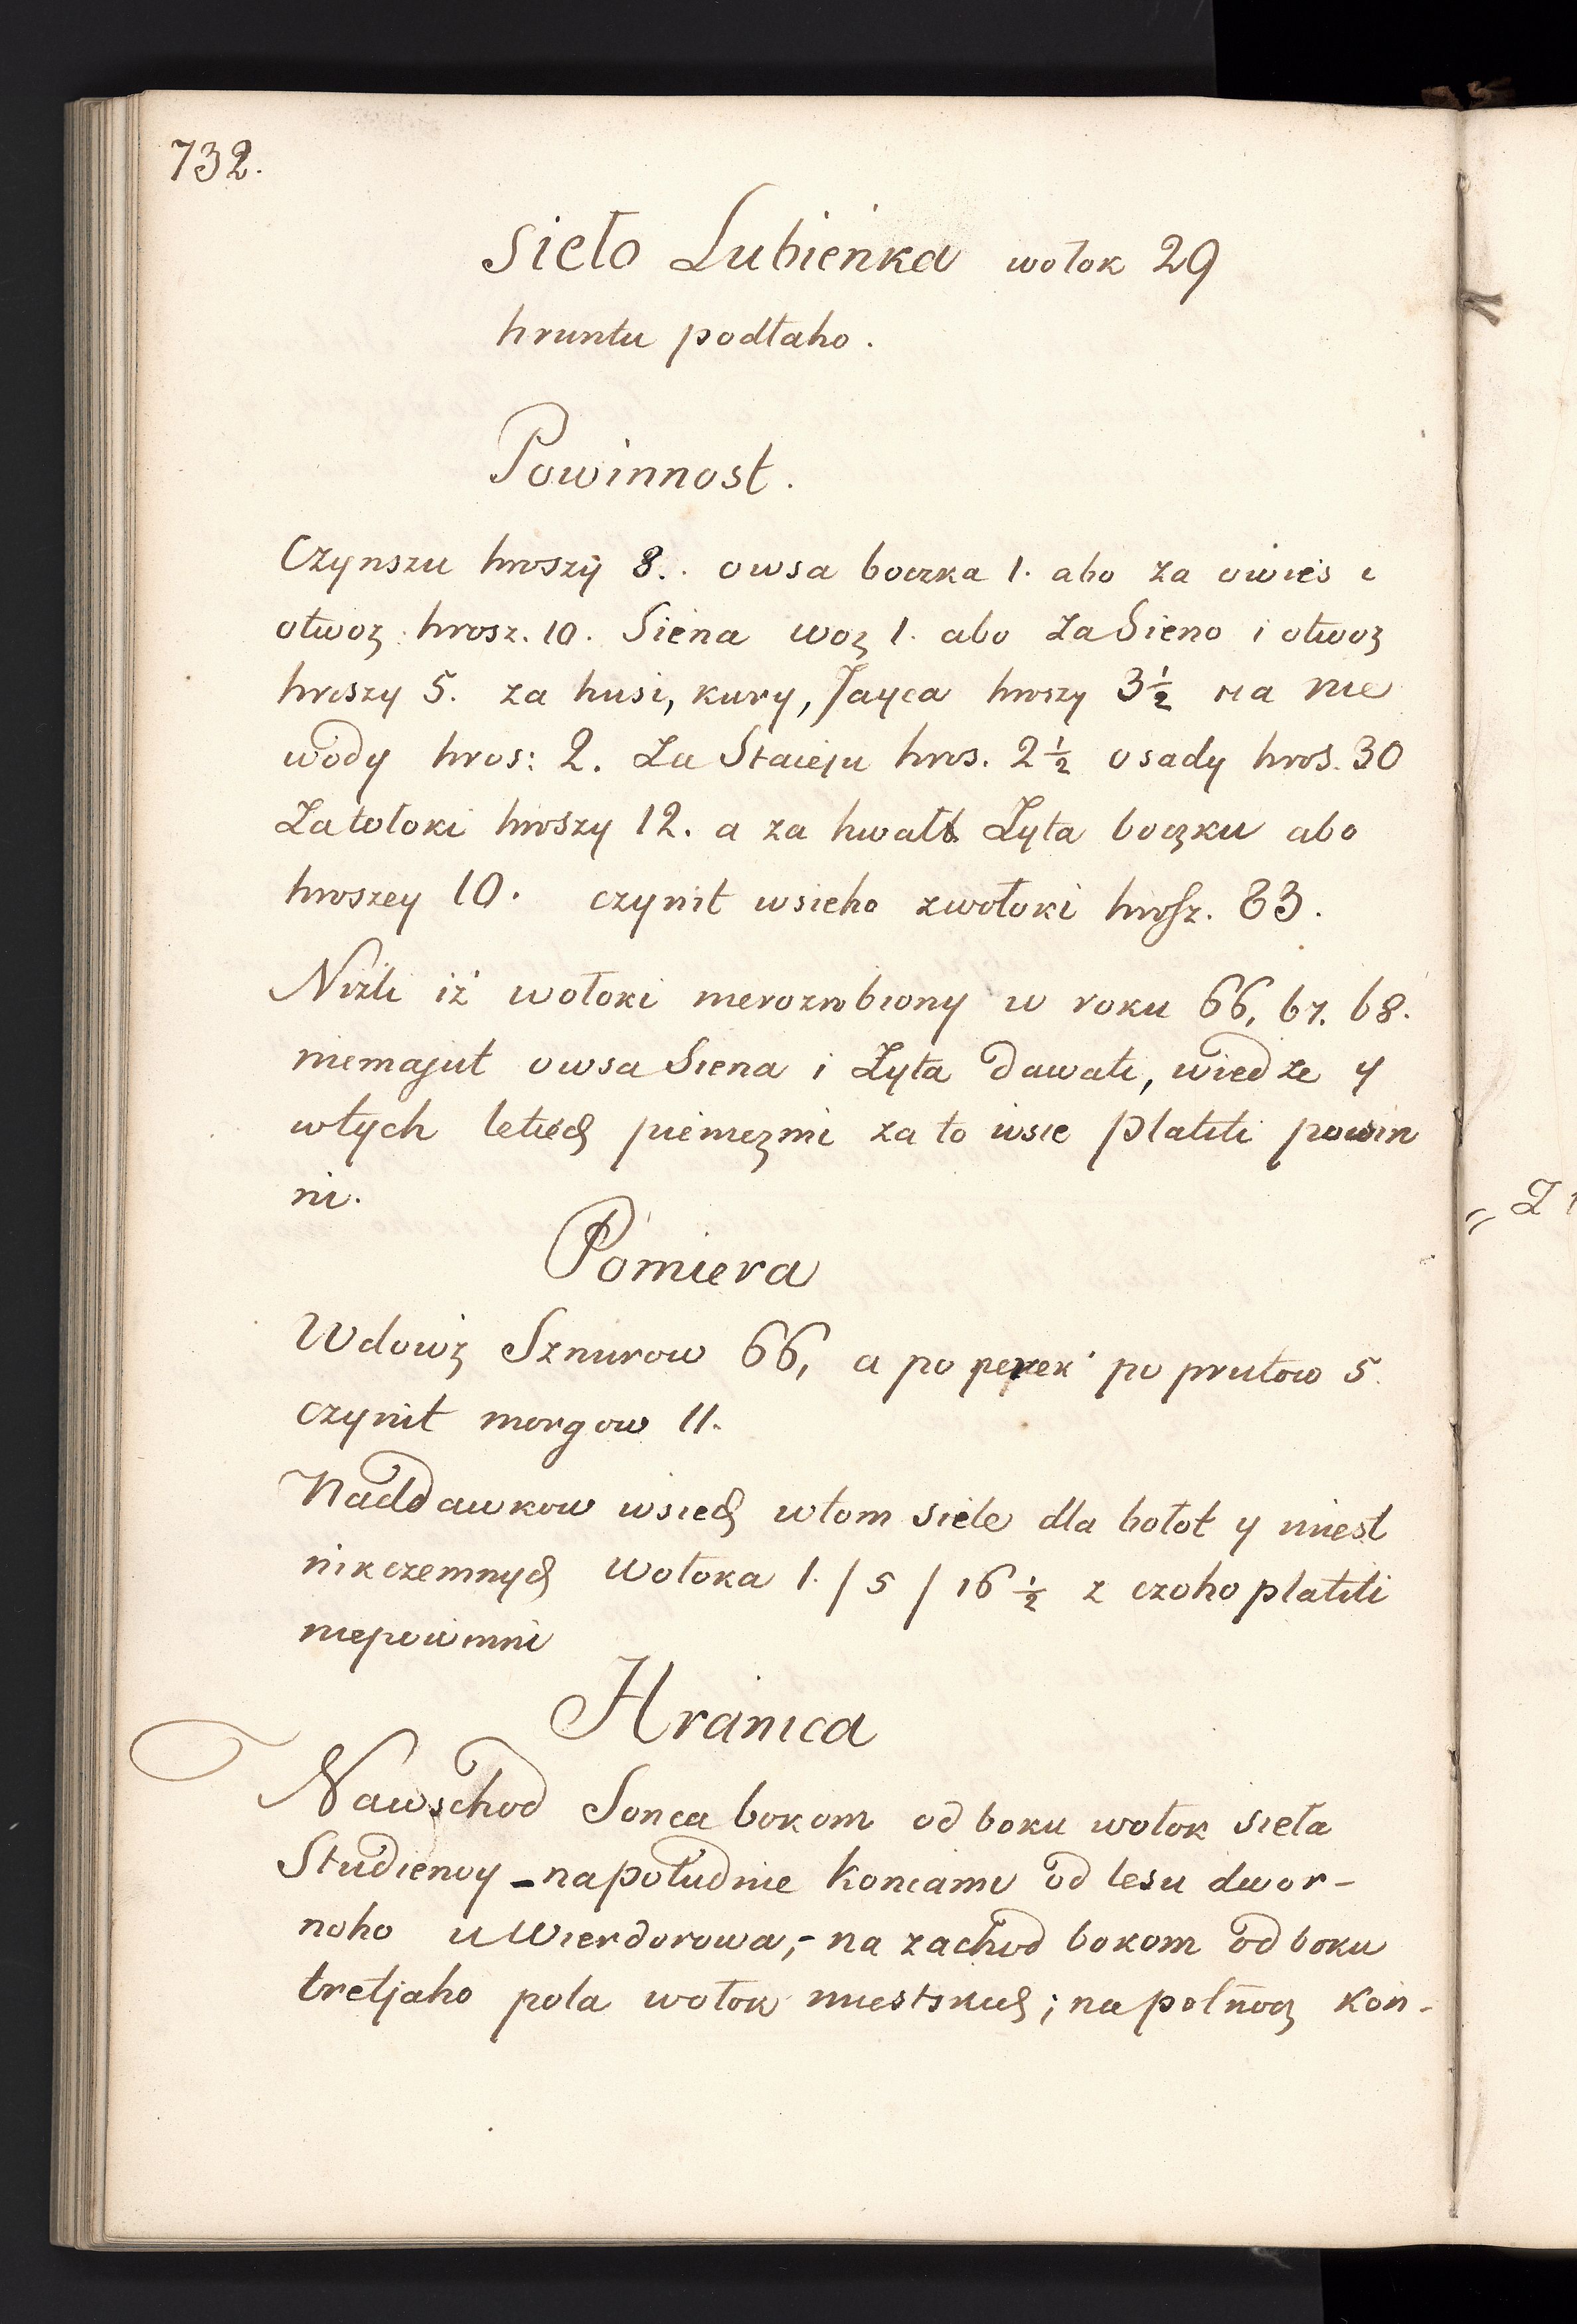 732.
Sieło Lubieńka wołok 29
hruntu podłaho.
Powinnost.
Czynszu hroszÿ 8.. owsa boczka 1. abo za owies i
otwoz hrosz. 10. Siena woz 1. abo za Sieno i otwoz
hroszy 5. za husi, kury, Jayca hroszy 3½ na nie
wody hros: 2. Za Stacyju hros. 2½ osady hros. 30
Zatołoki hroszy 12. a za hwałt Żyta boczku abo
hroszey 10. czynit wsieho zwołoki hrosz. 83.
Niżli iż wołoki nierozrobiony w roku 66, 67. 68.
niemajut owsa Siena i Żyta dawati, wiedże y
wtych letiech pieniezmi za to wsie płatiti powin
ni.
Pomiera
Wdowż Sznurow 66, a po perek po prutow 5.
czynit morgow 11.
Naddawkow wsiech wtom siele dla bołot y miest
nikczemnych Wołoka 1. / 5 / 16½ z czoho płatiti
niepowinni
Hranica
Nawschod Sonca bokom od boku wołok sieła
Studienoy – napołudnie Koncami od lesu dwor-
noho u Wierdorowa, - na zachod bokom od boku
tretjaho pola wołok miestskich; na połnocz Kon-
„ Z